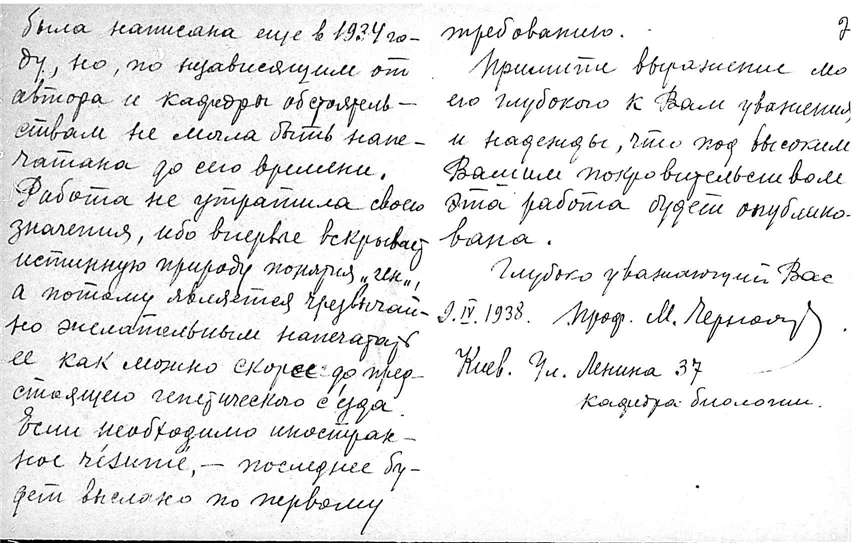 была написана еще в 1934 го-
ду, но, по независящим от
автора и кафедры обстоятель-
ствам не могла быть напе-
чатана до сего времени.
Работа не утратила своего
значения, ибо впервые вскрывает
истинную природу понятия „ген“,
а потому является чрезвычай-
но желательным напечатать
ее как можно скорее до пред-
стоящего генетического с'езда.
Если необходимо иностран-
ное résumé, — последнее бу-
дет выслано по первому
требованию.
Примите выражение мо
его глубокого к Вам уважения
и надежды, что под высоким
Вашим покровительством
эта работа будет опублико-
вана.
Глубоко уважающий Вас
9.IV.1938. Проф. М.
Киев. Ул. Ленина 37
кафедра биологии.